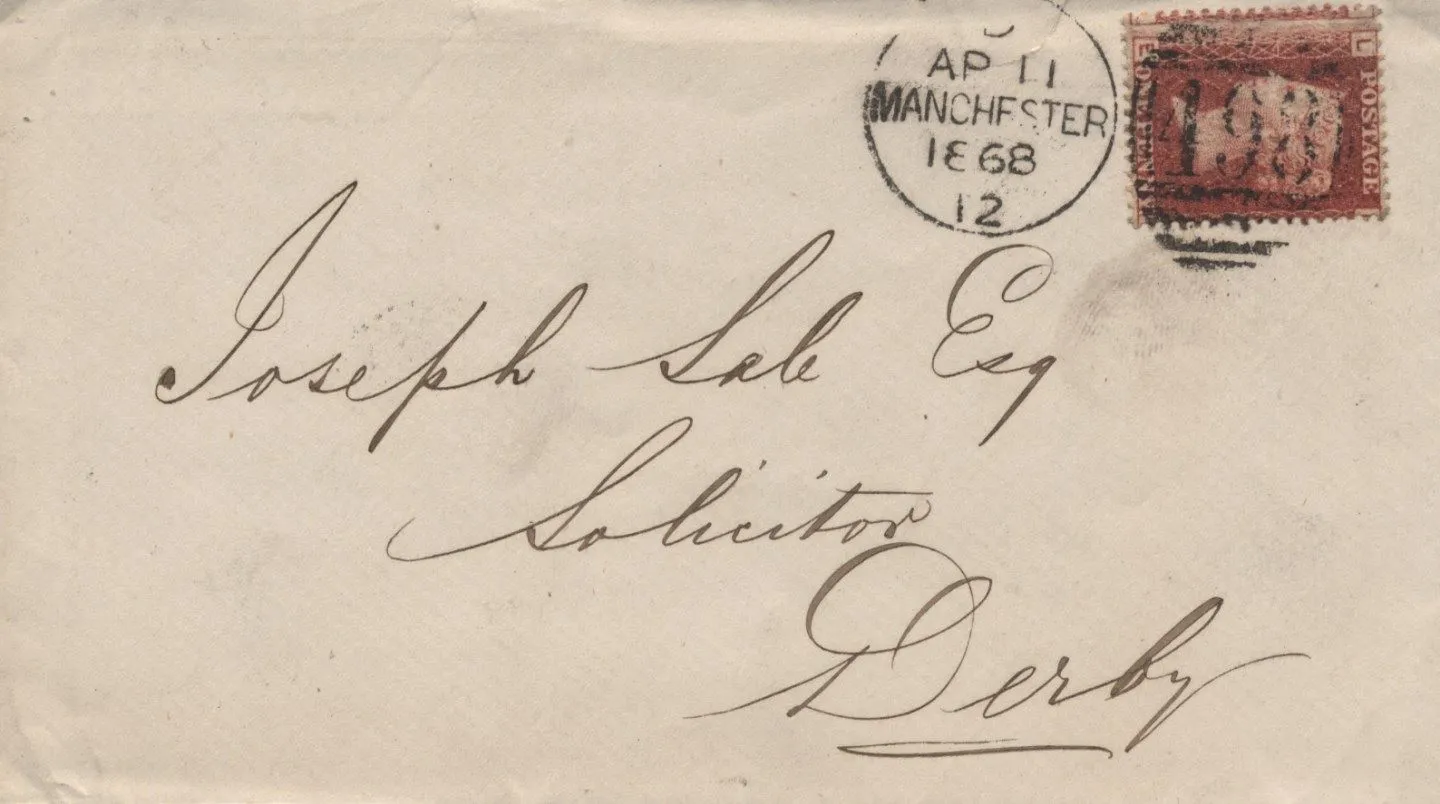 AP 11
MANCHESTER
1868
12
498
POSTAGE
L
E
Joseph Sale Esq
Solicitor
Derby